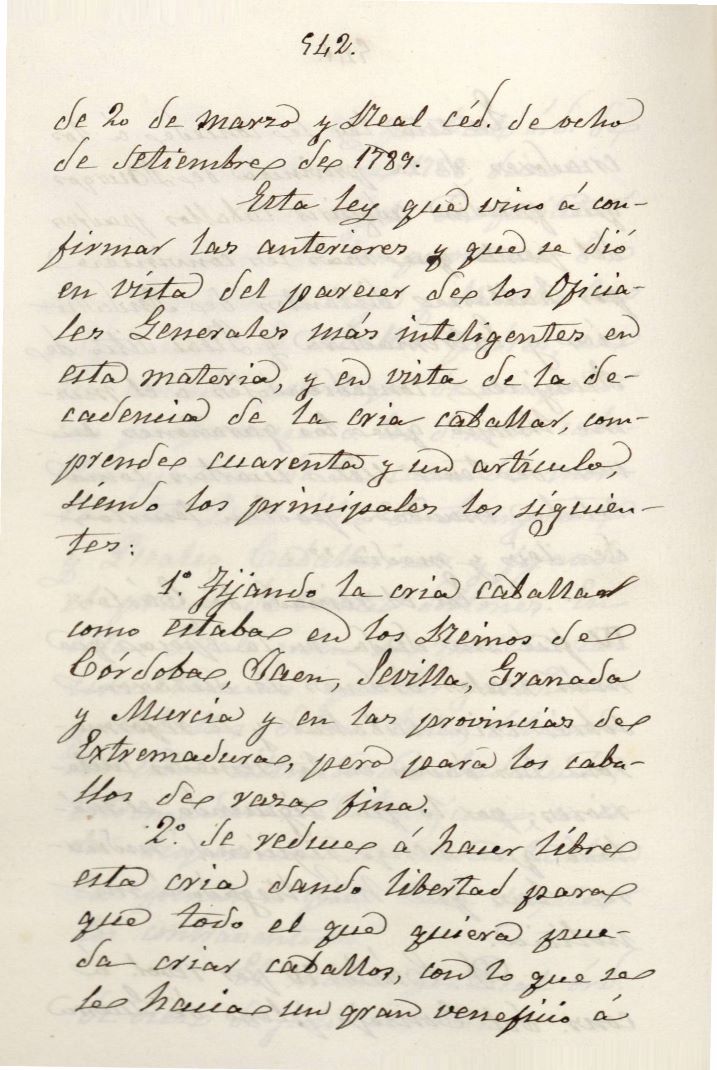 542.
de 20 de marzo y Real céd. de ocho
de Setiembre de 1789.
Esta ley que vino á con-
firmar las anteriores y que se dió
en vista del parecer de los Oficia-
les Generales más inteligentes en
esta materia, y en vista de la de-
cadencia de la cria caballar, com-
prende cuarenta y un artículo,
siendo los principales los siguien-
tes:
1.º Fijando la cria caballar
como estaba en los Reinos de
Córdoba, Jaen, Sevilla, Granada
y Murcia y en las provincias de
Extremadura, pero para los caba-
llos de raza fina.
2.º Se reduce á hacer líbre
esta cria dando libertad para
que todo el que quiera pue-
da criar caballos, con lo que se
le hacia un gran veneficio á